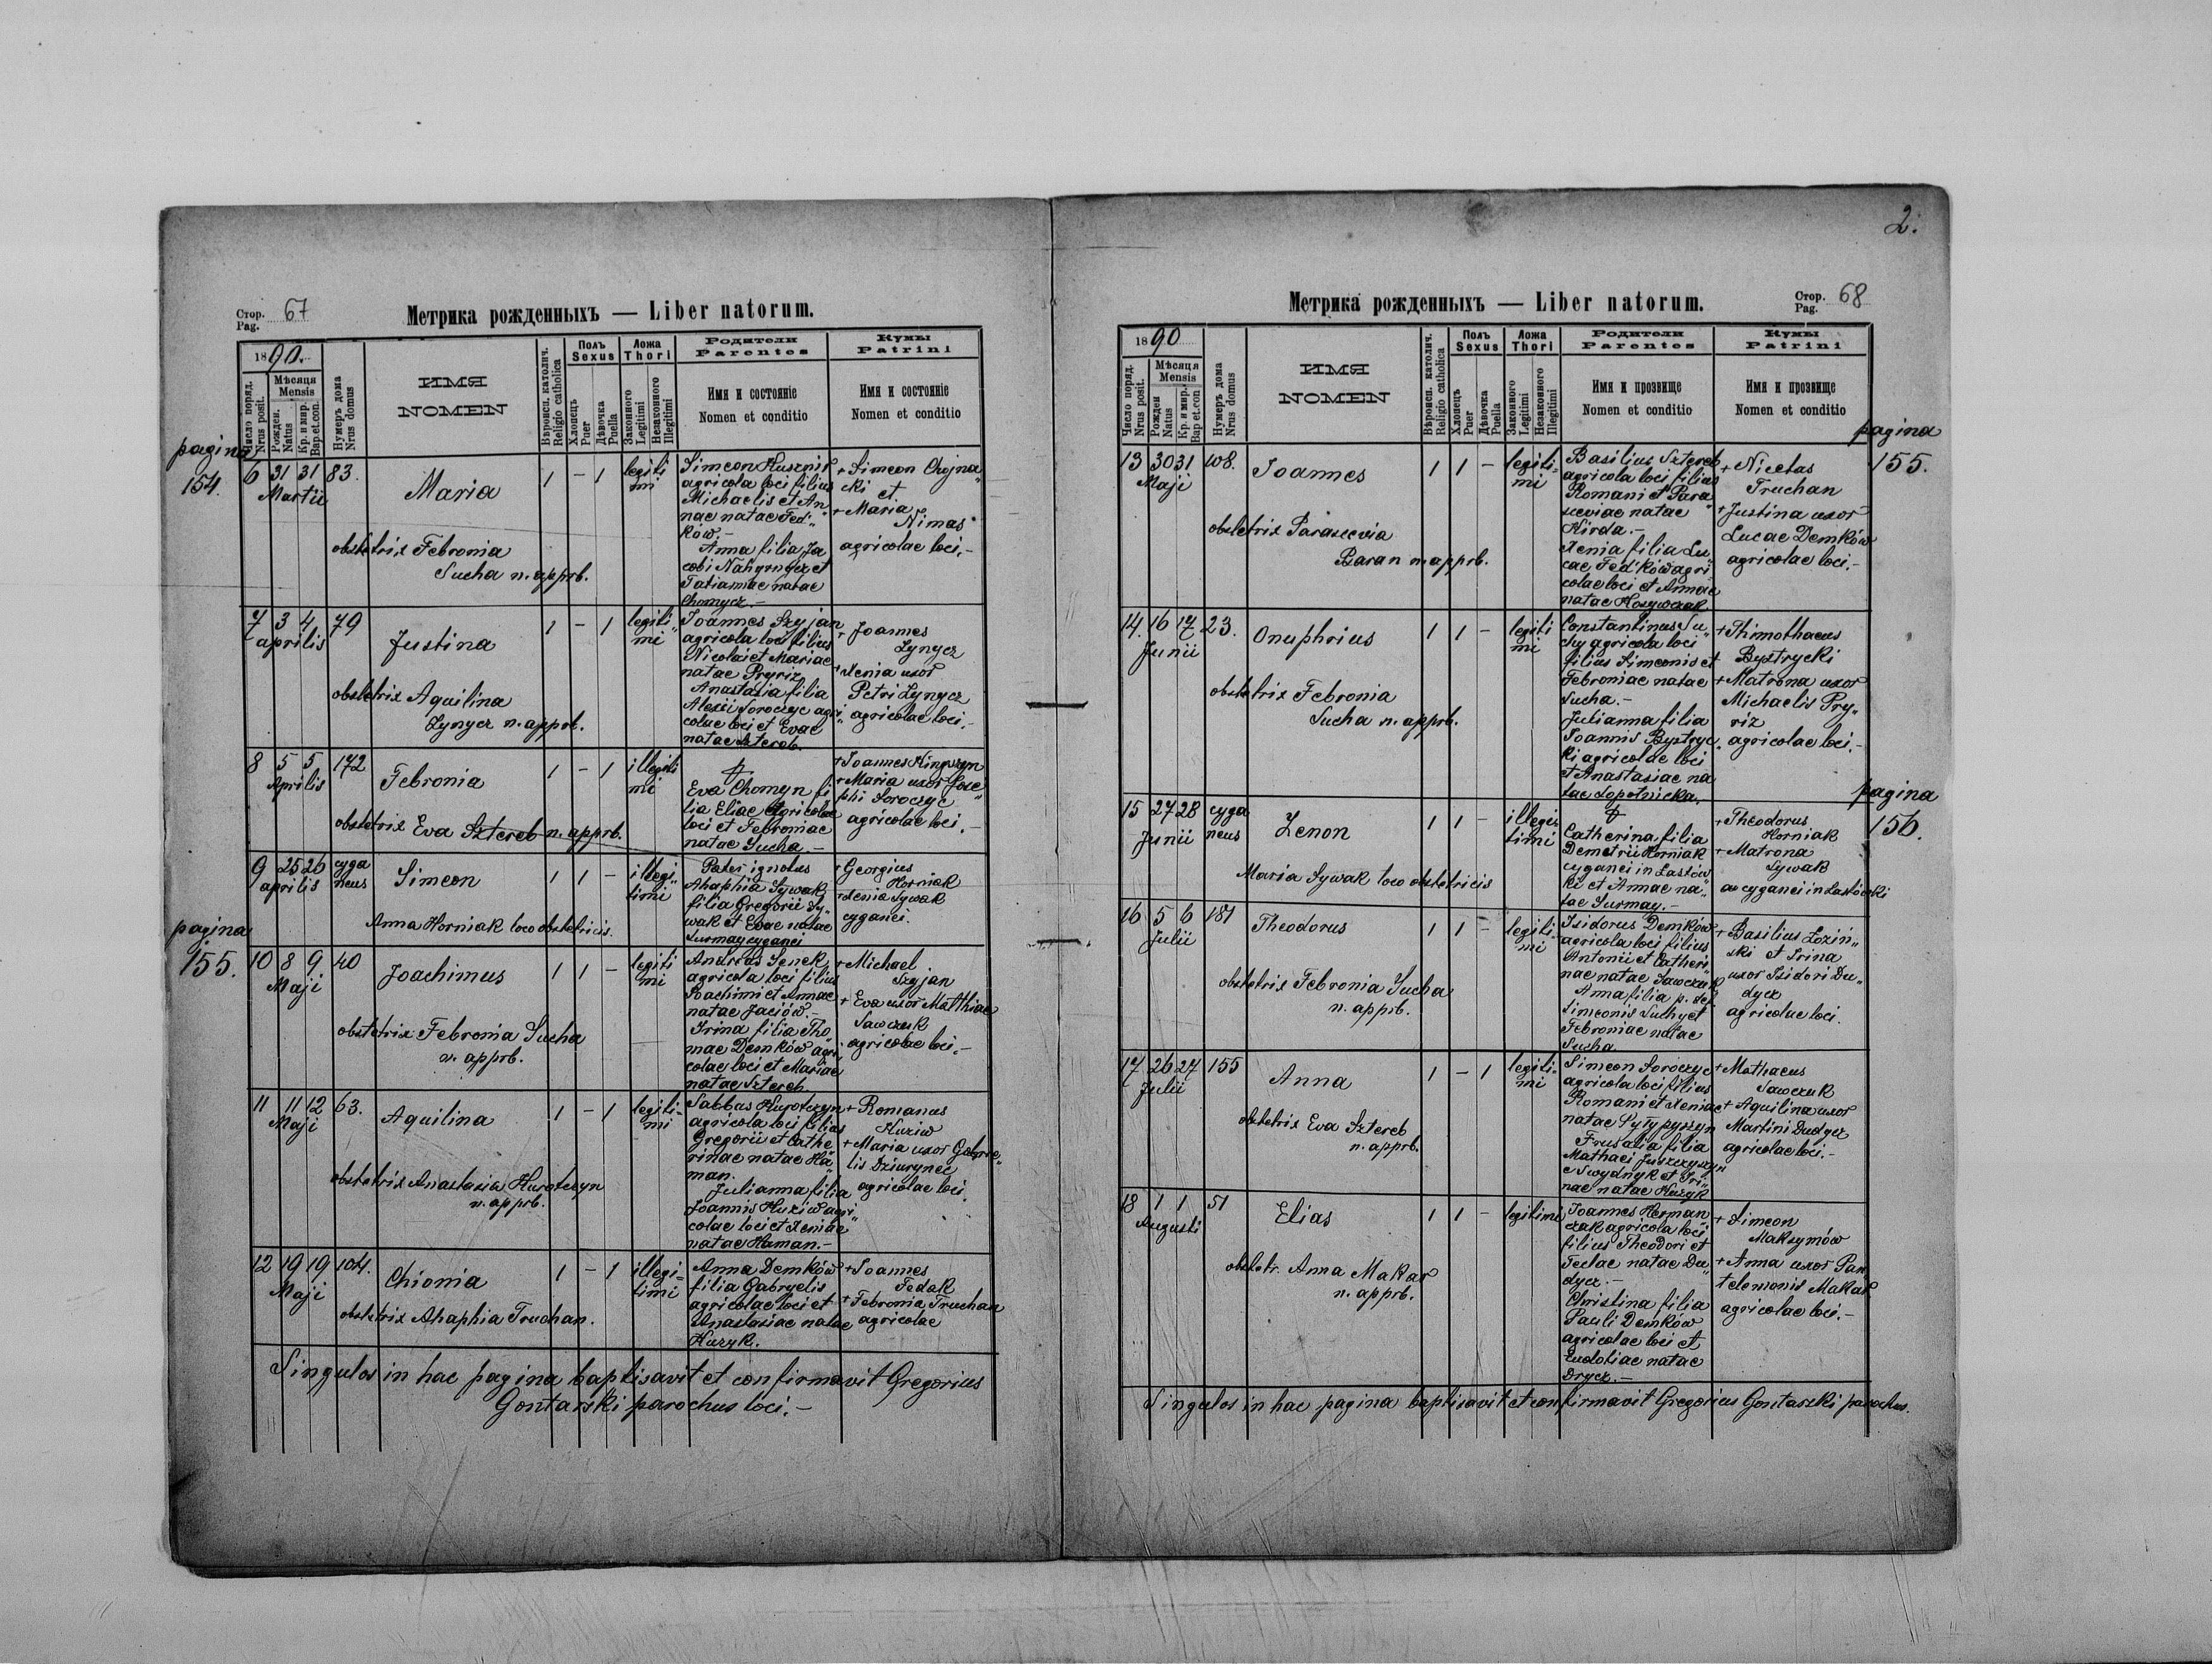 Стор. 67
Pag.
Метрика рожденныхъ — Liber natorum.
1890.
Число поряд.
Nrus posit.
Мѣсяця
Mensis
Рожден.
Natus
Кр. и мир.
Bap.et.con.
Нумеръ дома
Nrus domus
ИМЯ
NOMEN
Вѣроисп. католич.
Religio catholica
Полъ
Sexus
Хлопець
Puer
Дѣвочка
Puella
Ложа
Thori
Законного
Legitimi
Незаконного
Illegitimi
Родители
Parentes
Имя и состояніе
Nomen et conditio
Кумы
Patrini
Имя и состояніе
Nomen et conditio
pagina
154.
6 31 31 83.
Martii
Maria
1 - 1 legiti
mi
obstetrix Febronia
Sucha n. apprb.
Simeon
agricola loci filius
Michaelis et An„
nae natae Fed'„
ków.-
Anna filia Ja
cobi et
Tatiannae natae
Chomycz.-
+ Simeon Chojna„
cki et
+ Maria
Nimas
agricolae loci.-
7 3 4 79
aprilis
Justina
1 - 1 legiti„
mi
obstetrix Aquilina
Łynycz n. apprb.
Joannes Szyjan
agricola loci filius
Nicolai et Mariae
natae Pryriz
Anastasia filia
Alexii Soroczyc agri„
colae loci et Evae
natae Sztereb.
+ Joannes
Łynycz
+ Xenia uxor
Petri Łynycz
agricolae loci.-
8 5 5 172
Aprilis
Febronia
1 - 1 illegiti
mi
obstetrix Eva Sztereb n. apprb.
Eva Chomyn fi
lia Eliae Agricolae
loci et Febroniae
natae Sucha.-
+ Joannes
+ Maria uxor Jose„
phi Soroczyc
agricolae loci.-
9 25 26 cyga
neus
aprilis
Simeon
1 1 - illegi„
timi
Anna Horniak loco obstetricis.
Pater ignotus
Ahaphia Sywak
filia Gregorii Sy„
wak et Evae natae
Surmay cyganei
+ Georgius
Horniak
+ Xenia Sywak
cyganei.
pagina
155.
10 8 9 40
Maji
Joachimus
1 1 - legiti
mi
obstetrix Febronia Sucha
n. apprb.
Andreas Senek
agricola loci filius
Joachimi et Annae
natae Jaciów.-
Irina filia Tho„
mae Demków agri
colae loci et Mariae
natae Sztereb.
+ Michael
Szyjan
+ Eva uxor Matthiae
Sawczuk
agricolae loci.-
11 11 12 63.
Maji
Aquilina
1 - 1 legiti-
mi
obstetrix Anastasia Hurotczyn
n. apprb.
Sabbas Hurotczyn
agricola loci filius
Gregorii et Cathe
rinae natae Ha„
man.
Julianna filia
Joannis Huziw agri„
colae loci et Xeniae
natae Haman.-
+ Romanus
Huziw
+ Maria uxor Gabrie„
lis Dziurynec
agricolae loci.
12 19 19 104.
Maji
Chionia
1 - 1 illegi=
timi
obstetrix Ahaphia Truchan.
Anna Demków
filia Gabryelis
agricolae loci et
Anastasiae natae
Huzyk.
+ Joannes
Fedak
+ Febronia Truchan
agricolae
Singulos in hac pagina baptisavit et confirmavit Gregorius
Gontarski parochus loci.-
2.
Метрика рожденныхъ — Liber natorum.
Стор. 68
Pag.
1890
Число поряд.
Nrus posit.
Мѣсяця
Mensis
Рожден
Natus
Кр. и мир.
Bap et.con.
Нумеръ дома
Nrus domus
ИМЯ
NOMEN
Вѣроисп. католич.
Religio catholica
Полъ
Sexus
Хлопець
Puer
Дѣвочка
Puella
Ложа
Thori
Законного
Legitimi
Незаконного
Illegitimi
Родители
Parentes
Имя и прозвище
Nomen et conditio
Кумы
Patrini
Имя и прозвище
Nomen et conditio
pagina
155.
13 30 31 108.
Maji
Joannes
1 1 - legiti=
mi
obstetrix Parascevia
Baran n. apprb.
Basilius Sztereb
agricola loci filius
Romani et Para„
sceviae natae
Hirda.-
Xenia filia Lu„
cae Fed'ków agri„
colae loci et Annae
natae
+ Nicetas
Truchan
+ Justina uxor
Lucae Demków
agricolae loci.-
14. 16 17 23.
Junii
Onuphrius
1 1 - legiti
mi
obstetrix Febronia
Sucha n. apprb.
Constantinus Su„
chy agricola loci
filius Simeonis et
Febroniae natae
Sucha.-
Julianna filia
Joannis Bystryc„
ki agricolae loci
et Anastasiae na
tae Łopotnicka.
+ Thimothaeus
Bystrycki
+ Matrona uxor
Michaelis Pry„
riz
agricolae loci.-
pagina
156.
15 27 28 cyga
neus
Junii
Zenon
1 1 - illegi„
timi
Maria Sywak loco obstetricis
Catherina filia
Demetrii Horniak
cyganei in Łastów„
ki et Annae na„
tae Surmay.-
+ Theodorus
Horniak
+ Matrona
Sywak
cyganei in Łastówki
16 5 6 181
Julii
Theodorus
1 1 - legiti-
mi
obstetrix Febronia Sucha
n. apprb.
Isidorus Demków
agricola loci filius
Antonii et Catheri„
nae natae Sawczuk
Anna filia p. def.
Simeonis Suchy et
Febroniae natae
Sucha.
+ Basilius Łoziń„
ski et Irina
uxor Isidori Du„
dycz
agricolae loci.
17 26 27 155
Julii
Anna
1 - 1 legiti=
mi
obstetrix Eva Sztereb
n. apprb.
Simeon Soroczyc
agricola loci filius
Romani et Xeniae
natae
filia
Mathaei
et Iri„
nae natae Huzyk
+ Mathaeus
Sawczuk
+ Aquilina uxor
Martini Dudycz
agricolae loci.-
18 1 1 51
Augusti
Elias
1 1 - legitimi
obstetr. Anna Makar
n. apprb.
Joannes Herman
czak agricola loci
filius Theodori et
Teclae natae Du„
dycz.-
Christina filia
Pauli Demków
agricolae loci et
Eudotiae natae
Drycz.-
+ Simeon
Maksymów
+ Anna uxor Pan
telemonis Makar
agricolae loci.-
Singulos in hac pagina baptisavit et confirmavit Gregorius Gontarski parochus.